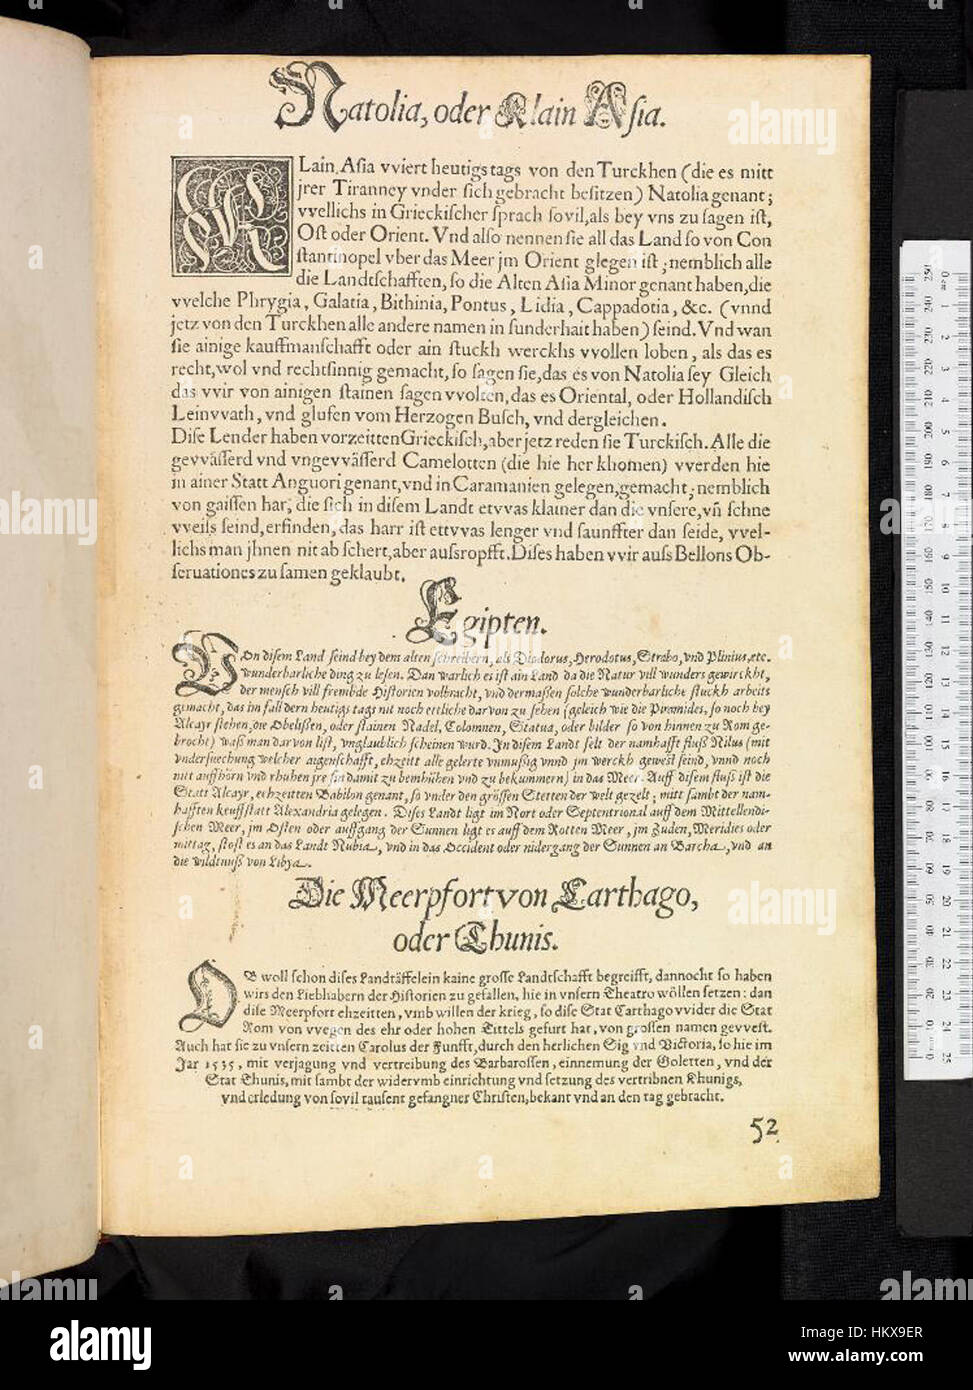 Natolia, oder Klain Asia.
KLain, Asia vviert heutigs tags von den Turckhen (die es mitt
jrer Tiranney vnder sich gebracht besitzen) Natolia genant;
vvellichs in Grieckischer sprach sovil, als bey vns zu sagen ist,
Ost oder Orient. Vnd also nennen sie all das Land so von Con
stantinopel vber das Meer jm Orient glegen ist; nemblich alle
die Landtschafften, so die Alten Asia Minor genant haben, die
vvelche Phrygia, Galatia, Bithinia, Pontus, Lidia, Cappadotia, &c. (vnnd
jetz von den Turckhen alle andere namen in sunderhait haben) seind. Vnd wan
sie ainige kauffmanschafft oder ain stuckh werckhs vvollen loben, als das es
recht, wol vnd rechtsinnig gemacht, so sagen sie, das es von Natolia sey Gleich
das vvir von ainigen stainen sagen vvolten, das es Oriental, oder Hollandisch
Leinvvath, vnd glufen vom Herzogen Busch, vnd dergleichen.
Dise Lender haben vorzeitten Grieckisch, aber jetz reden sie Turckisch. Alle die
gevvässerd vnd vngevvässerd Camelotten (die hie her khomen) vverden hie
in ainer Statt Anguori genant, vnd in Caramanien gelegen, gemacht; nemblich
von gaissen har, die sich in disem Landt etvvas klainer dan die vnsere, vn̄ schne
vveiss seind, erfinden, das harr ist ettvvas lenger vnd saunffter dan seide, vvel-
lichs man jhnen nit ab schert, aber aussropfft. Dises haben vvir auss Bellons Ob-
seruationes zu samen geklaubt.
Egipten.
VOn disem Land seind bey dem alten schreibern, als Diodorus, Herodotus, Strabo, vnd Plinius, etc.
wunderbarliche ding zu lesen. Dan warlich es ist ain Land da die Natur vill wunders gewirckht,
der mensch vill frembde Historien volbracht, vnd dermassen solche wunderbarliche stuckh arbeits
gemacht, das im fall dern heutigs tags nit noch ettliche darvon zu sehen (gleich wie die Piramides, so noch bey
Alcayr stehen, die Obelisten, oder stainen Nadel, Colomnen, Statua, oder bilder so von hinnen zu Rom ge-
brocht) wass man darvon list, vnglaublich scheinen wurd. In disem Landt felt der namhafft fluss Nilus (mit
vndersuechung welcher aigenschafft, ehzeitt alle gelerte vnmussig vnnd jm werckh gewest seind, vnnd noch
nit auffhörn vnd rhuhen jre sin damit zu bemhühen vnd zu bekummern) in das Meer. Auff disem fluss ist die
Statt Alcayr, echzeitten Babilon genant, so vnder den grössen Stetten der welt gezelt; mitt sambt der nam-
hafften keuffstatt Alexandria gelegen. Dises Landt ligt im Nort oder Septentrional auff dem Mittellendi-
schen Meer, jm Osten oder auffgang der Sunnen ligt es auff dem Rotten Meer, jm Zuden, Meridies oder
mittag, stost es an das Landt Nubia, vnd in das Occident oder nidergang der Sunnen an Barcha, vnd an
die wildtnuss von Libya.
Die Meerpfort von Carthago,
oder Thunis.
OB woll schon dises Landtäffelein kaine grosse Landtschafft begreifft, dannocht so haben
wirs den Liebhabern der Historien zu gefallen, hie in vnsern Theatro wöllen setzen: dan
dise Meerpfort ehzeitten, vmb willen der krieg, so dise Stat Carthago vvider die Stat
Rom von vvegen des ehr oder hohen Tittels gefurt hat, von grossen namen gevvest.
Auch hat sie zu vnsern zeitten Carolus der Funfft, durch den herlichen Sig vnd Victoria, so hie im
Jar 1535, mit verjagung vnd vertreibung des Barbarossen, einnemung der Goletten, vnd der
Stat Thunis, mit sambt der widervmb einrichtung vnd setzung des vertribnen Khunigs,
vnd erledung von sovil tausent gefangner Christen, bekant vnd an den tag gebracht.
52
alamy
Image ID: HKX9ER
www.alamy.com